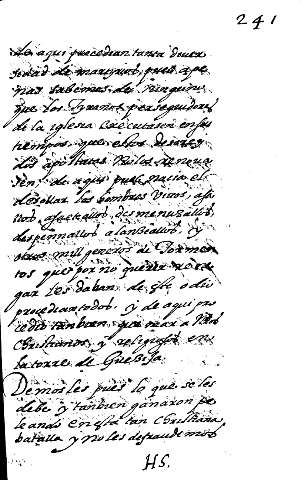 241
de aqui procedian tanta diver
sidad de martirios, pues ape
nas sabemos de ninguno
que los Tyranos perseguidores
de la iglesia executasen en sus
tiempos que estos
dos apostatas no los renova
sen, de aqui pues nacio el
desollar los hombres vivos, asa
llos, asaetallos, desmenuzallos,
despeñallos alanceallos, y
otros mil generos de Tormen
tos que por no querer rene
gar les daban de este odio
procedian todos, y de aqui pro
cedio tambien quemar a los
christianos, y religiosos en
la torre de Guebija.
Demos les pues lo que se les
debe y tanbien ganaron pe
leando en esta tan christiana
batalla y no les defraudemos
HS.